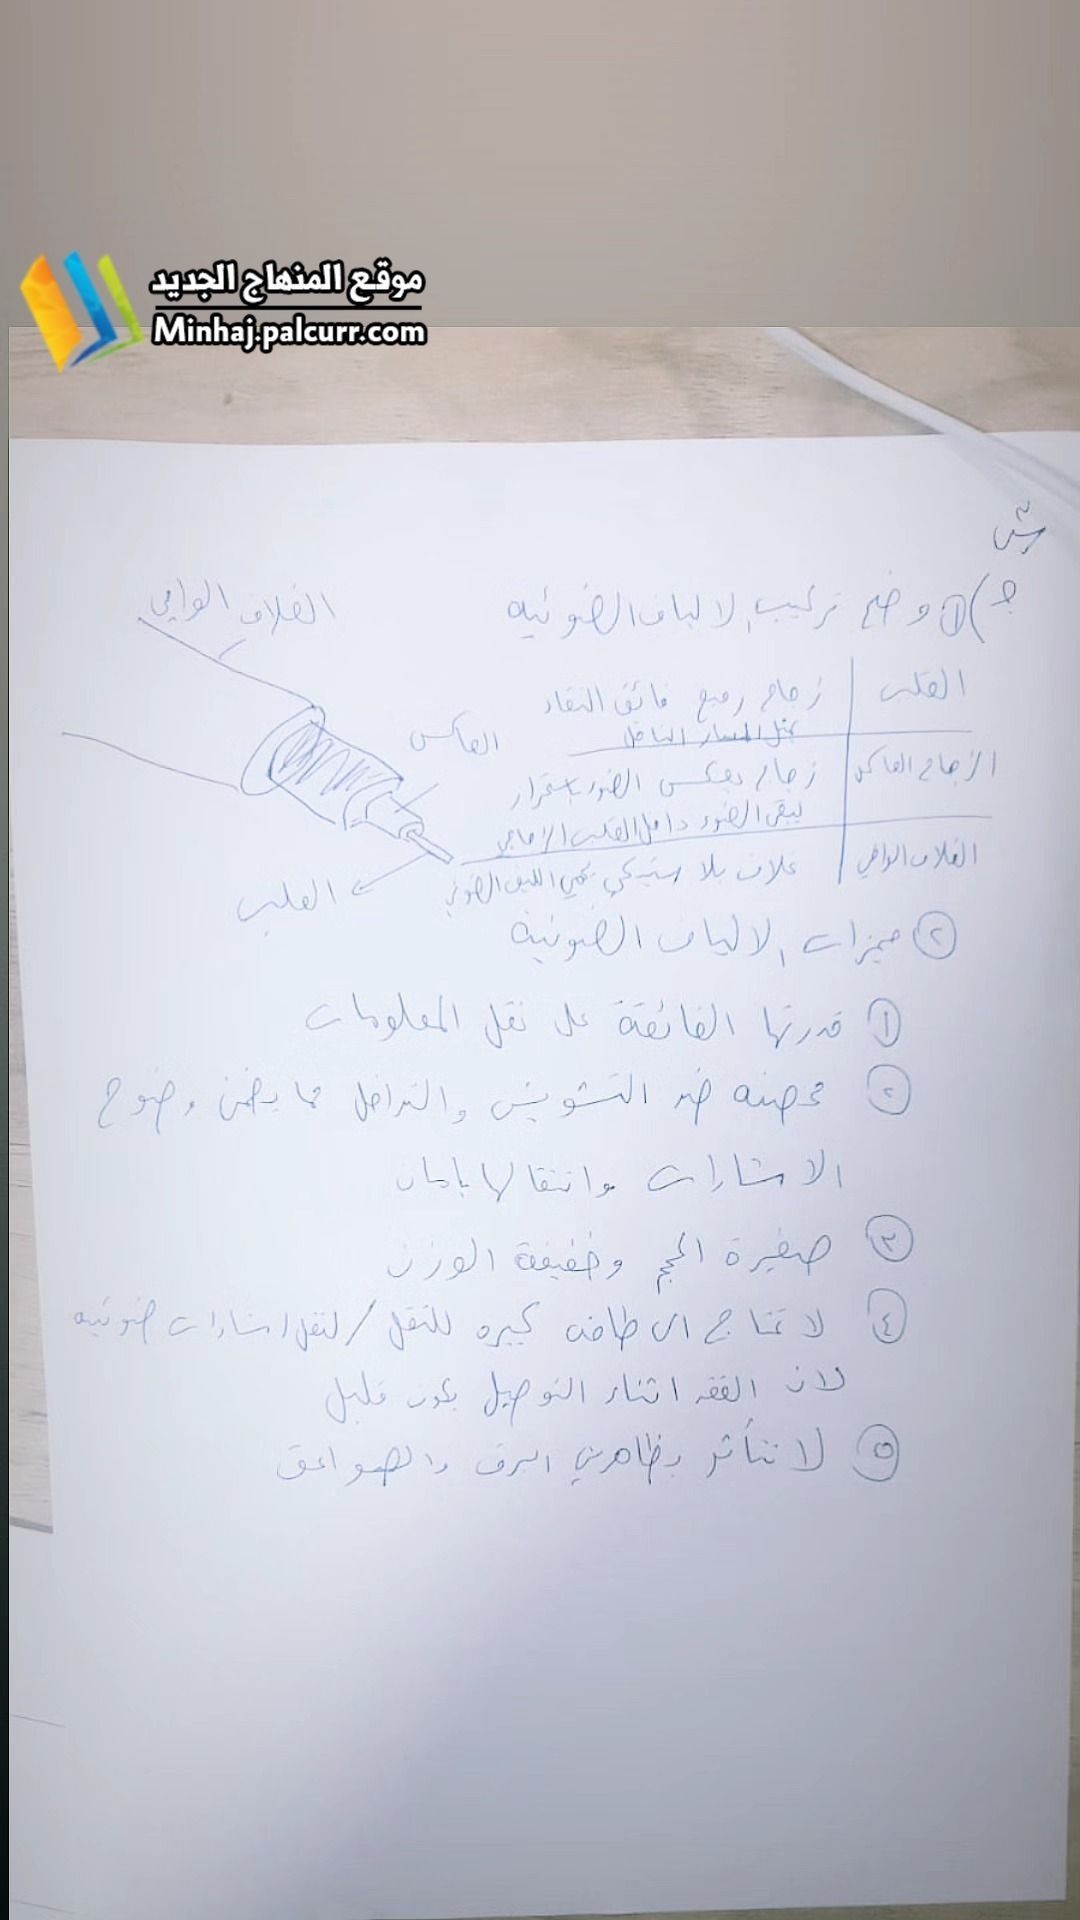 موقع المنهاج الجديد
Minhaj.palcurr.com
ج) ① وضح تركيب الالياف الضوئيه
الغلاف الواقي
القلب | زجاج رفيع فائق النقاء
يمثل المسار الناقل
العاكس
الزجاج العاكس | زجاج يعكس الضوء باستمرار
ليبقى الضوء داخل القلب الزجاجي
الغلاف الواقي | غلاف بلاستيكي يحمي الليف الضوئي
القلب
② مميزات الالياف الضوئية
① قدرتها الفائقة على نقل المعلومات
② محصنه ضد التشويش والتداخل مما يضمن وضوح
الاشارات وانتقالها بامان
③ صغيرة الحجم وخفيفة الوزن
④ لا تحتاج الى طاقه كبيره للنقل / لنقل اشارات ضوئيه
لان الفقد اثناء التوصيل يكون قليل
⑤ لا تتأثر بظاهرتي البرق والصواعق